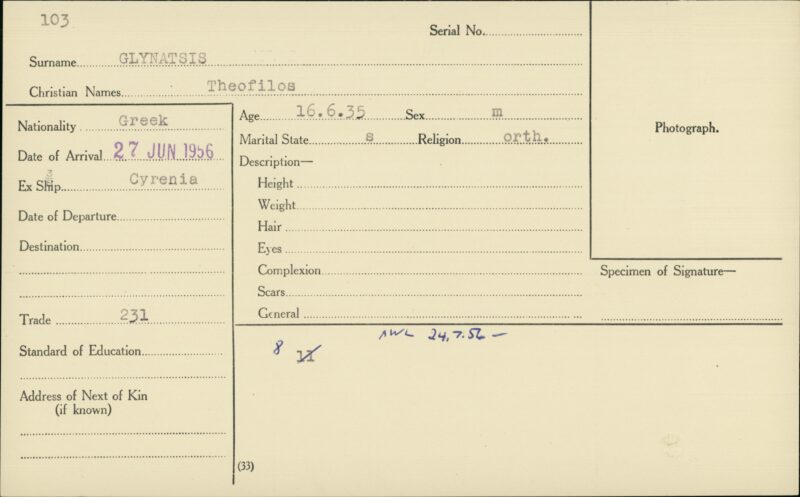 103
Serial No.
Surname GLYNATSIS
Christian Names Theofilos
Nationality Greek
Date of Arrival 27 JUN 1956
Ex Ship Cyrenia
Date of Departure
Destination
Trade 231
Standard of Education
Address of Next of Kin
(if known)
Age 16.6.35 Sex m
Marital State s Religion orth.
Description—
Height
Weight
Hair
Eyes
Complexion
Scars
General
Photograph.
Specimen of Signature—
AWL 24.7.56 —
8 11
(33)